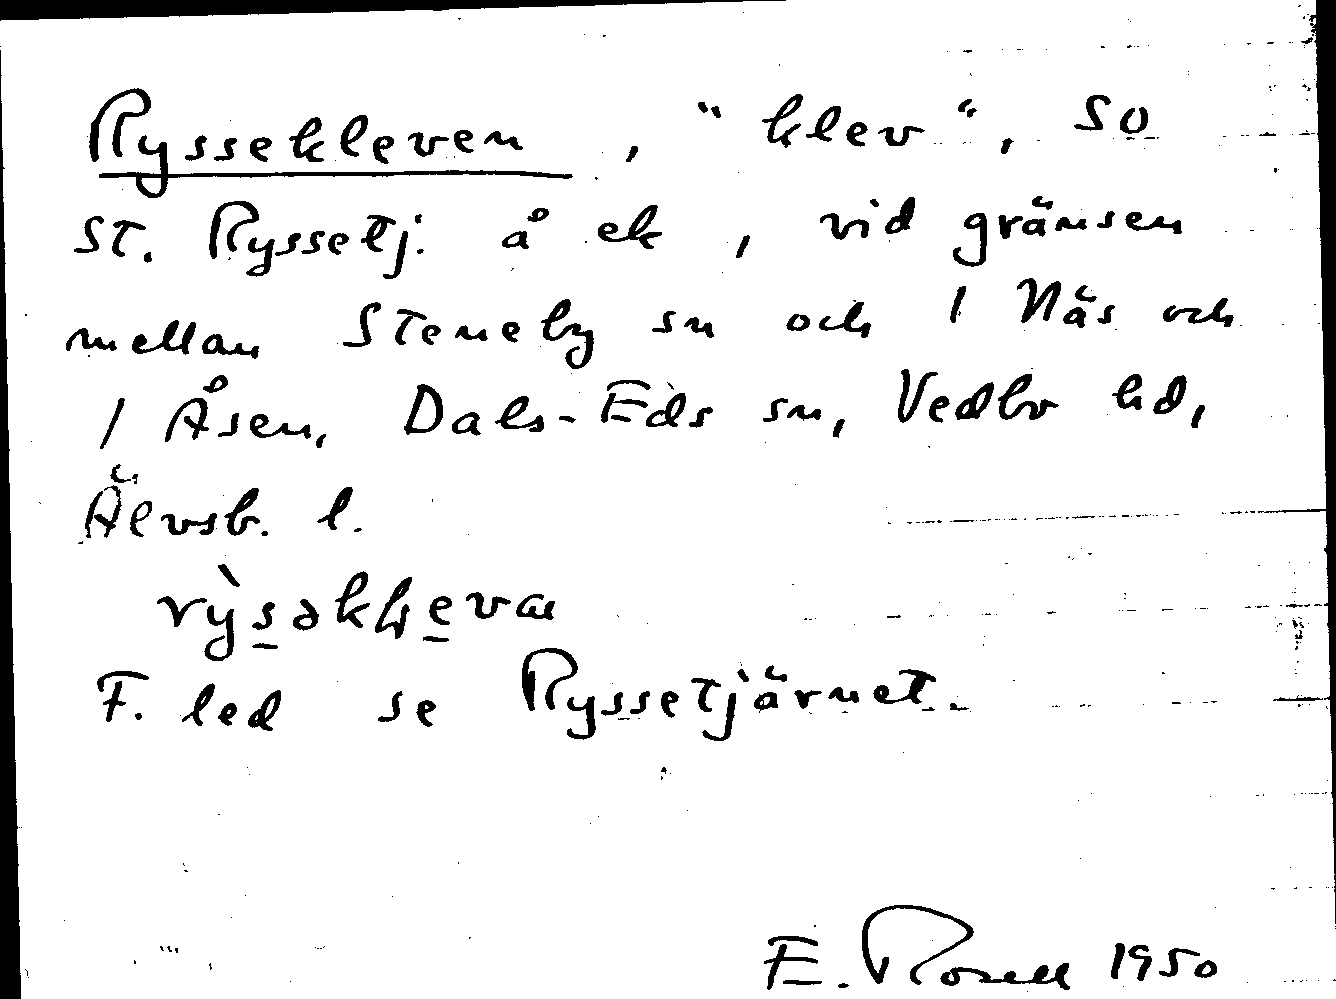 Ryssekleven, "klev", SO
St.Ryssetj. å ek, vid gränsen
mellan Steneby sn och 1 Näs och
1 Åsen, Dals-Eds sn, Vedbo hd,
Älvsb. l.
F. led se Ryssetjärnet.
E. Rosell 1950